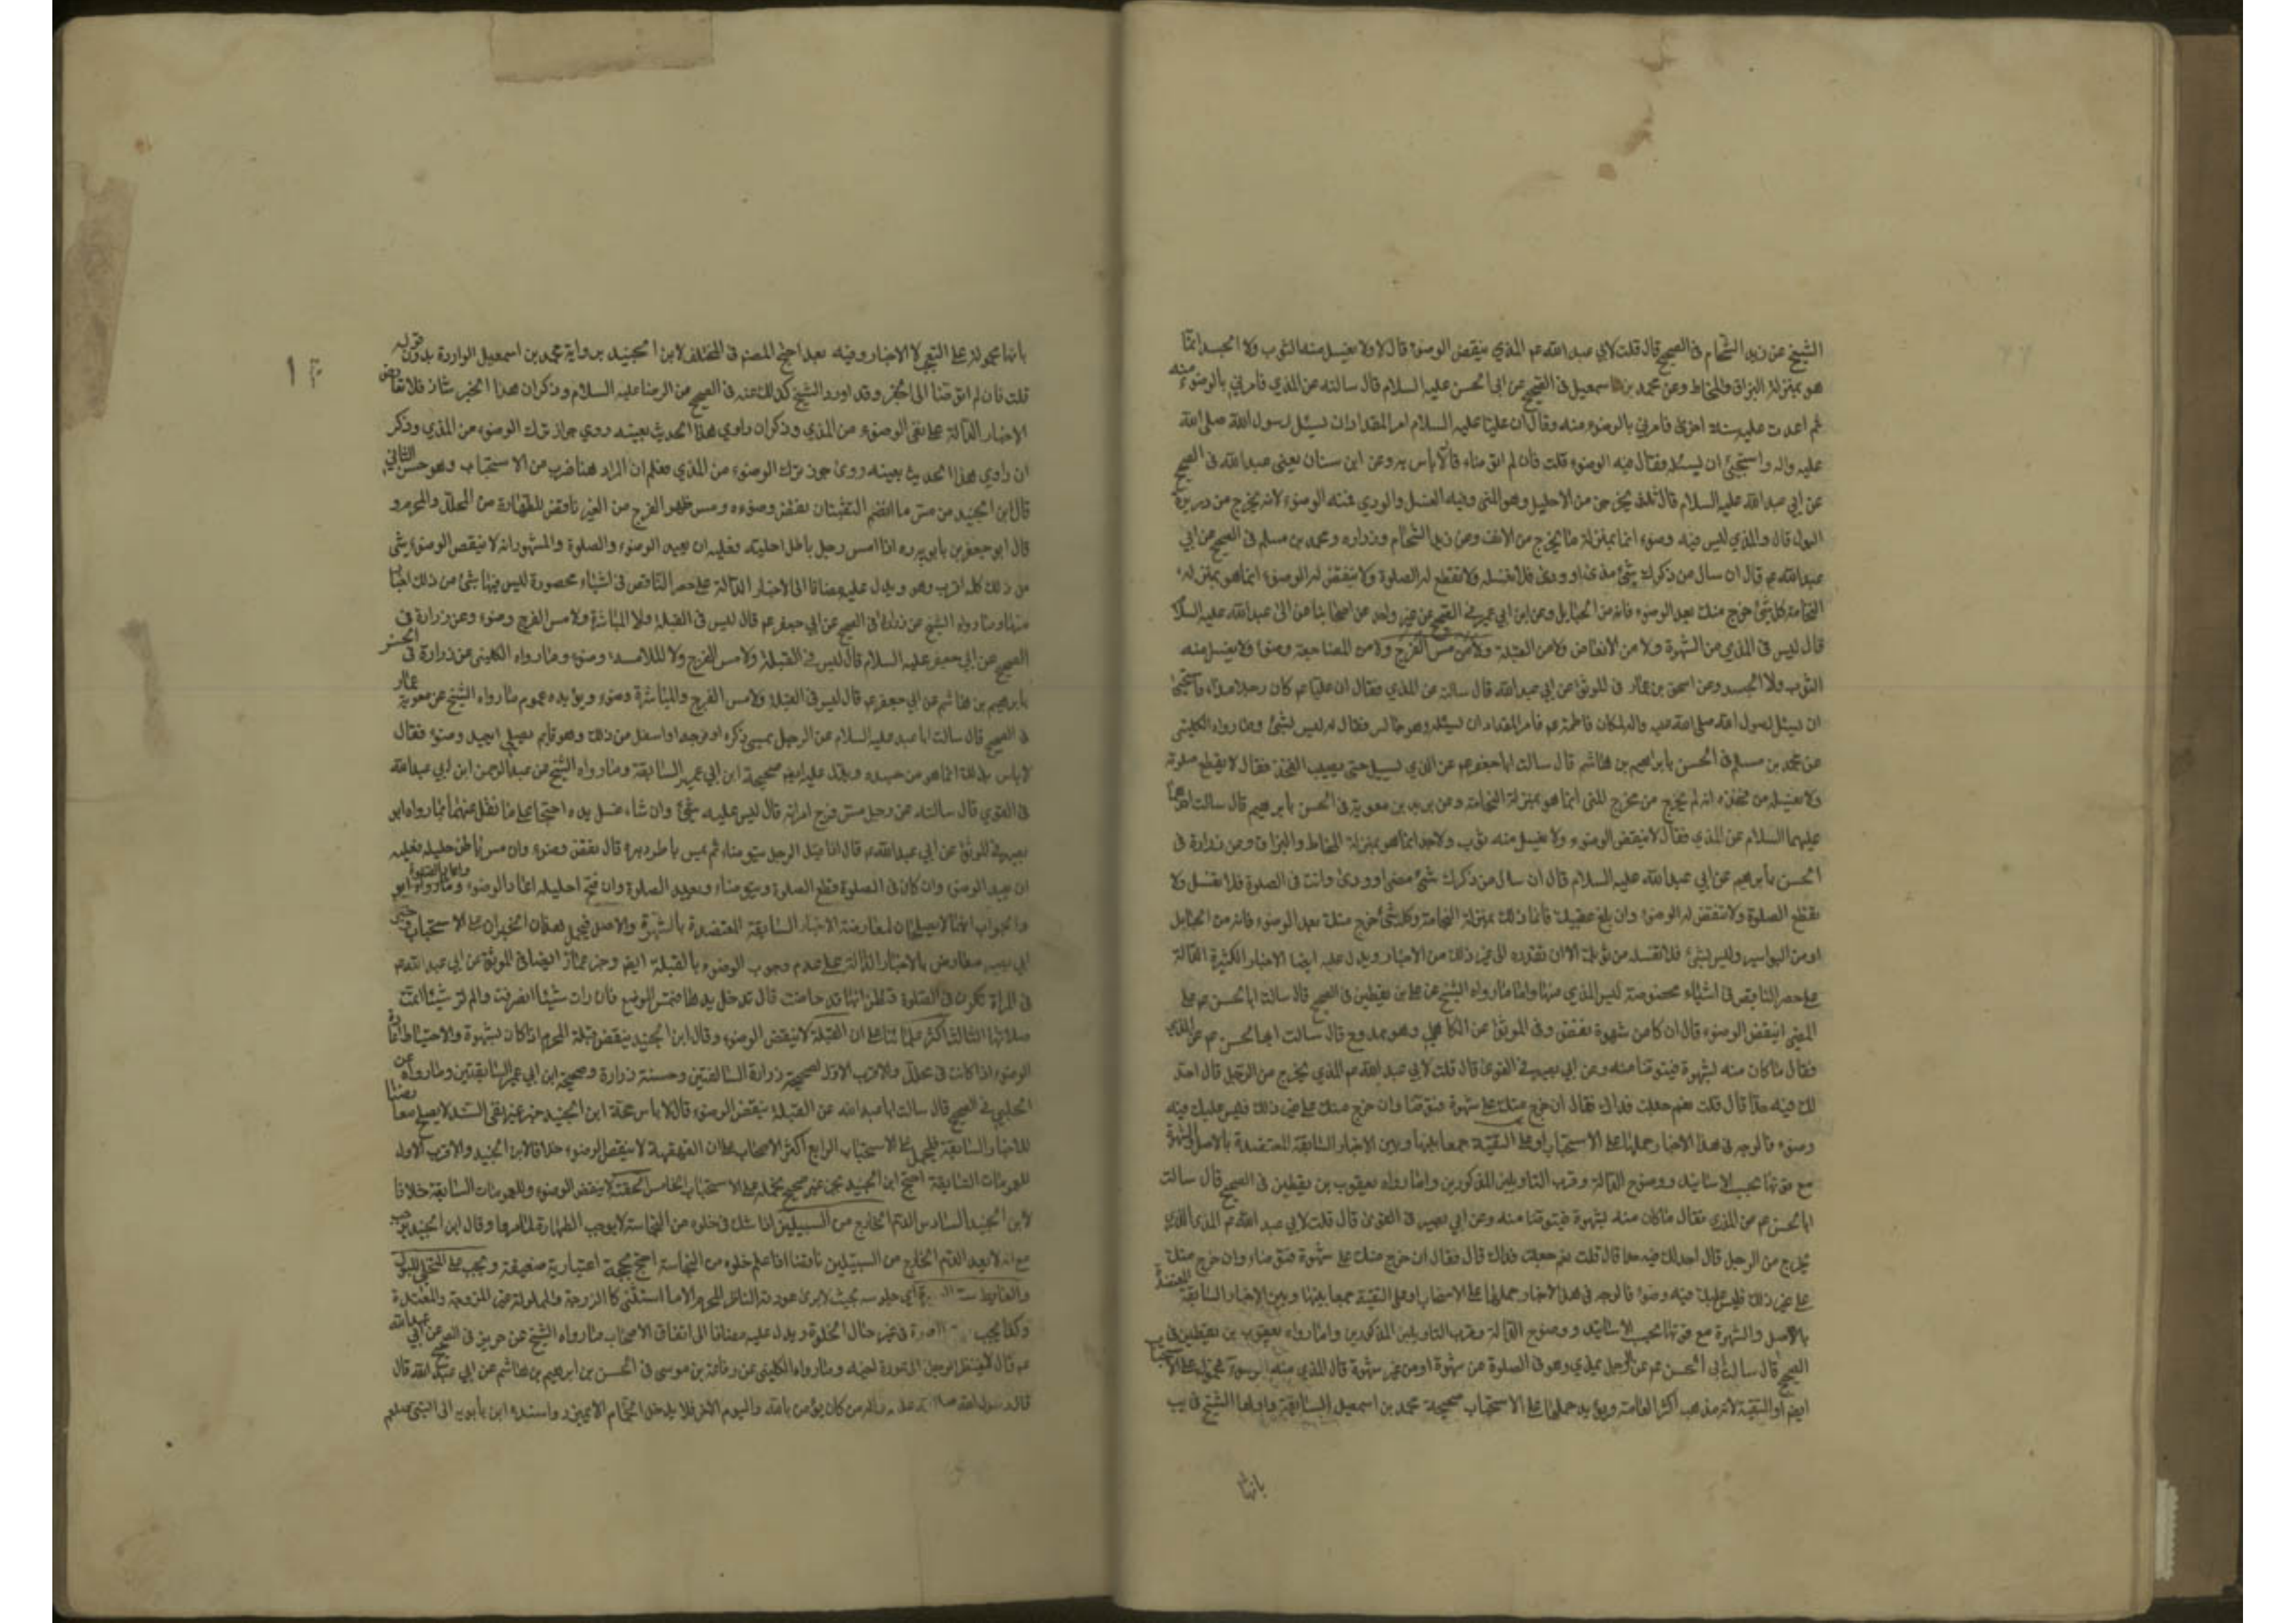 الشيخ عن زيد الشحام في الصحيح قال قلت لابي عبد الله عم المذي ينقض الوضوء قال لا ولا يغسل منه الثوب ولا الجسد انما
هو بمنزلة البزاق والمخاط وعن محمد بن اسمعيل في الصحيح عن ابي الحسن عليه السلام قال سالته عن المذي فامرني بالوضوء منه
ثم اعدت عليه سنة اخرى فامرني بالوضوء منه وقال ان عليا عليه السلام امر المقداد ان يسئل رسول الله صلى الله
عليه واله واستحيى ان يسئله فقال فيه الوضوء قلت فان لم اتوضاء قال لا باس به وعن ابن سنان يعنى عبد الله في الصحيح
عن ابي عبد الله عليه السلام قال ثلث يخرجن من الاحليل وهو المنى وفيه الغسل والودي فمنه الوضوء لانه يخرج من دريرة
البول قال والمذي ليس فيه وضوء انما بمنزلة ما يخرج من الانف وعن زيد الشحام وزراره ومحمد بن مسلم في الصحيح عن ابي
عبد الله عم قال ان سال من ذكرك شئ مذى او ودى فلا تغسله ولا تقطع له الصلوة ولا ينقض له الوضوء انما هو بمنزلة
النخامة كل شئ خرج منك بعد الوضوء فانه من الحبايل وعن ابن ابي عمير في الصحيح عن غير واحد من اصحابنا عن ابي عبد الله عليه السلا
قال ليس في المذي من الشهوة ولا من الانعاض ولا من القبلة ولا من مس الفرج ولا من المضاجعة وضوء ولا يغسل منه
الثوب ولا الجسد وعن اسحق بن عمار في الموثق عن ابي عبد الله قال سالته عن المذي فقال ان عليا عم كان رجلا مذاء فاستحيى
ان يسئل رسول الله صلى الله عليه واله لمكان فاطمة عم فامر المقداد ان يسئله وهو جالس فقال له ليس بشئ وما رواه الكليني
عن محمد بن مسلم في الحسن بابراهيم بن هاشم قال سالت ابا جعفر عم عن المذي يسيل حتى يصيب الفخذ فقال لا يقطع صلوته
ولا يغسله من فخذه انه لم يخرج من مخرج المنى انما هو بمنزلة النخامة وعن بريد بن معوية في الحسن بابرهيم قال سالت احدهما
عليهما السلام عن المذي فقال لا ينقض الوضوء ولا يغسل منه ثوب ولا جسد انما هو بمنزلة المخاط والبزاق وعن زرارة في
الحسن بابرهيم عن ابي عبد الله عليه السلام قال ان سال من ذكرك شئ مذى او ودى وانت في الصلوة فلا تغسله ولا
تقطع الصلوة ولا تنقض له الوضوء وان بلغ عقبيك فانما ذلك بمنزلة النخامة وكل شئ خرج منك بعد الوضوء فانه من الحبايل
او من البواسير وليس بشئ فلا تغسله من ثوبك الا ان تقذره الى غير ذلك من الاخبار ويدل عليه ايضا الاخبار الكثيرة الدالة
على حصر الناقض في اشياء مخصوصة ليس المذي منها واما ما رواه الشيخ عن علي بن يقطين في الصحيح قال سالت ابا الحسن عم عن
المذي اينقض الوضوء قال ان كان من شهوة نقض وفي الموثق عن الكاهلي وهو ممدوح قال سالت ابا الحسن عم عن المذي
فقال ما كان منه لشهوة فيتوضا منه وعن ابي بصير في القوى قال قلت لابي عبد الله عم المذي يخرج من الرجل قال احد
لك فيه حدا قال قلت نعم جعلت فداك فقال ان خرج منك على شهوة فتوضا وان خرج منك على غير ذلك فليس عليك فيه
وضوء فالوجه في هذا الاخبار حملها على الاستحباب او على التقية جمعا بينها وبين الاخبار السابقة المعتضدة بالاصل والشهرة
مع قوتها بحسب الاسانيد ووضوح الدالة وقرب التاويلين المذكورين واما رواه يعقوب بن يقطين في الصحيح قال سالت
ابا الحسن عم عن المذي فقال ما كان منه لشهوة فيتوضا منه وعن ابي بصير في القوى قال قلت لابي عبد الله عم المذي الذي
يخرج من الرجل قال احد لك فيه حدا قال قلت نعم جعلت فداك قال فقال ان خرج منك على شهوة فتوضاء وان خرج منك
على غير ذلك فليس عليك فيه وضوء فالوجه في هذا الاخبار حملها على الاستحباب او على التقية جمعا بينها وبين الاخبار السابقة المعتضدة
بالاصل والشهرة مع قوتها بحسب الاسانيد ووضوح الدالة وقرب التاويلين المذكورين واما رواه يعقوب بن يقطين في
الصحيح قال سالت ابي الحسن عم عن الرجل يمذي وهو في الصلوة من شهوة او من غير شهوة قال المذي منه الوضوء محمولة على الاستحباب
ايضا او التقية لانه مذهب اكثر العامة ويؤيد حملها على الاستحباب صحيحة محمد بن اسمعيل السابقة واولها الشيخ في يب
بانها
بانها محمولة على التقية لا الاخبار وفيه بعد احتج المصنف في المختلف لابن الجنيد برواية محمد بن اسمعيل الواردة بدون قوله
قلت فان لم اتوضا الى اخره وقد اورد الشيخ كذلك عنه في الصحيح من الرضا عليه السلام وذكر ان هذا الخبر شاذ فلا تعارض
الاخبار الدالة على نفى الوضوء من المذي وذكر ان راوي هذا الحديث بعينه روي جواز ترك الوضوء من المذي وذكر
ان راوي هذا الحديث بعينه روى جوز ترك الوضوء من المذي فعلم ان المراد هنا ضرب من الاستحباب وهو حسن الثاني
قال ابن الجنيد من مس ما انضم الثقبتان نقض وضوءه ومس ظهر الفرج من الغير ناقض للطهارة من المحلل والمحرم و
قال ابو جعفر بن بابويه ره اذا مس رجل باطن احليله فعليه ان يعيد الوضوء والصلوة والمشهور انه لا ينقض الوضوء شئ
من ذلك كله اقرب وهو ويدل عليه مضافا الى الاخبار الدالة على حصر الناقض في اشياء محصورة ليس فيها شئ من ذلك
منها ما رواه الشيخ عن زرارة في الصحيح عن ابي جعفر عم قال ليس في القبلة ولا المباشرة ولا مس الفرج وضوء وعن زرارة في
الصحيح عن ابي جعفر عليه السلام قال ليس في القبلة ولا مس الفرج ولا الملامسة وضوء وما رواه الكليني عن زرارة في الحسن
بابرهيم بن هاشم عن ابي جعفر عم قال ليس في القبلة ولا مس الفرج والمباشرة وضوء ويؤيده عموم ما رواه الشيخ عن معوية عمار
في الصحيح قال سالت ابا عبد عليه السلام عن الرجل يمس ذكره او فرجه او اسفل من ذلك وهو قايم يصلي ايعيد وضوءه فقال
لا باس بذلك انما هو من جسده ويدل عليه ايضا صحيحة ابن ابي عمير السابقة وما رواه الشيخ عن عبد الرحمن ابن ابي عبد الله
في القوي قال سالته عن رجل مس فرج امراته قال ليس عليه شئ وان شاء غسل يده احتجا على ما نقل عنهما بما رواه ابو
بصير في الموثق عن ابي عبد الله عم قال اذا قبل الرجل
ان يعيد الوضوء وان كان في الصلوة قطع الصلوة ويتوضاء ويعيد الصلوة وان فتح احليله اعاد الوضوء
والجواب انهما لا يصلحان لمعارضة الاخبار السابقة المعتضدة بالشهرة والاصل فيحمل هذان الخبران على الاستحباب
ابي بصير معارض بالاخبار الدالة على عدم وجوب الوضوء بالقبلة ايضا وخبر عمار ايضا في الموثق عن ابي عبد الله عم
في المراة تكون في الصلوة فتظن انها قد حاضت قال تدخل يدها فتمس الموضع فان رات شيئا انصرفت والم تر شيئا اتمت
صلاتها الثالث اكثر علمائنا على ان القبلة لا ينقض الوضوء وقال ابن الجنيد ينقض قبلة المحرم اذا كان لشهوة والاحتياط اعادة
الوضوء اذا كانت في محلل والاقرب الاول لصحيحة زرارة السالفتين وحسنة زرارة وصحيحة ابن ابي عمير السابقتين وما رواه عن
الحلبي في الصحيح قال سالت ابا عبد الله عن القبلة ينقض الوضوء قال لا باس حجة ابن الجنيد خبر غير نقي السند لا يصلح معارضا
للاخبار السابقة فليحمل على الاستحباب الرابع اكثر الاصحاب على ان القهقهة لا ينقض الوضوء خلافا لابن الجنيد والاقرب الاول
للعمومات السابقة احتج ابن الجنيد بخبر غير صحيح نحمله على الاستحباب الخامس الحقنة لا ينقض الوضوء للعمومات السابقة خلافا
لابن الجنيد السادس الدم الخارج من السبيلين اذا شك في خلوه من النجاسة لا يوجب الطهارة لما مر وقال ابن الجنيد يوجب
مع انه لا يعيد الدم الخارج من السبيلين ناقضا اذا علم خلوه من النجاسة احتج بحجة اعتبارية ضعيفة ويجب على المتخلي للبول
والغايط ستر العورة اي جلوسه بحيث لا يرى عورته الناظر المحرم الا ما استثنى كالزوجة والمملوكة غير المزوجة والمعتدة
وكذا يجب ستر العورة في غير حال الخلوة ويدل عليه مضافا الى اتفاق الاصحاب ما رواه الشيخ عن حريز في الصحيح عن ابي عبد الله
عم قال لا ينظر الرجل الى عورة اخيه وما رواه الكليني عن رفاعة بن موسى في الحسن بن ابرهيم بن هاشم عن ابي عبد الله قال
قال رسول الله صلى الله عليه واله من كان يؤمن بالله واليوم الاخر فلا يدخل الحمام الا بميزر واسنده ابن بابويه الى النبي صلعم